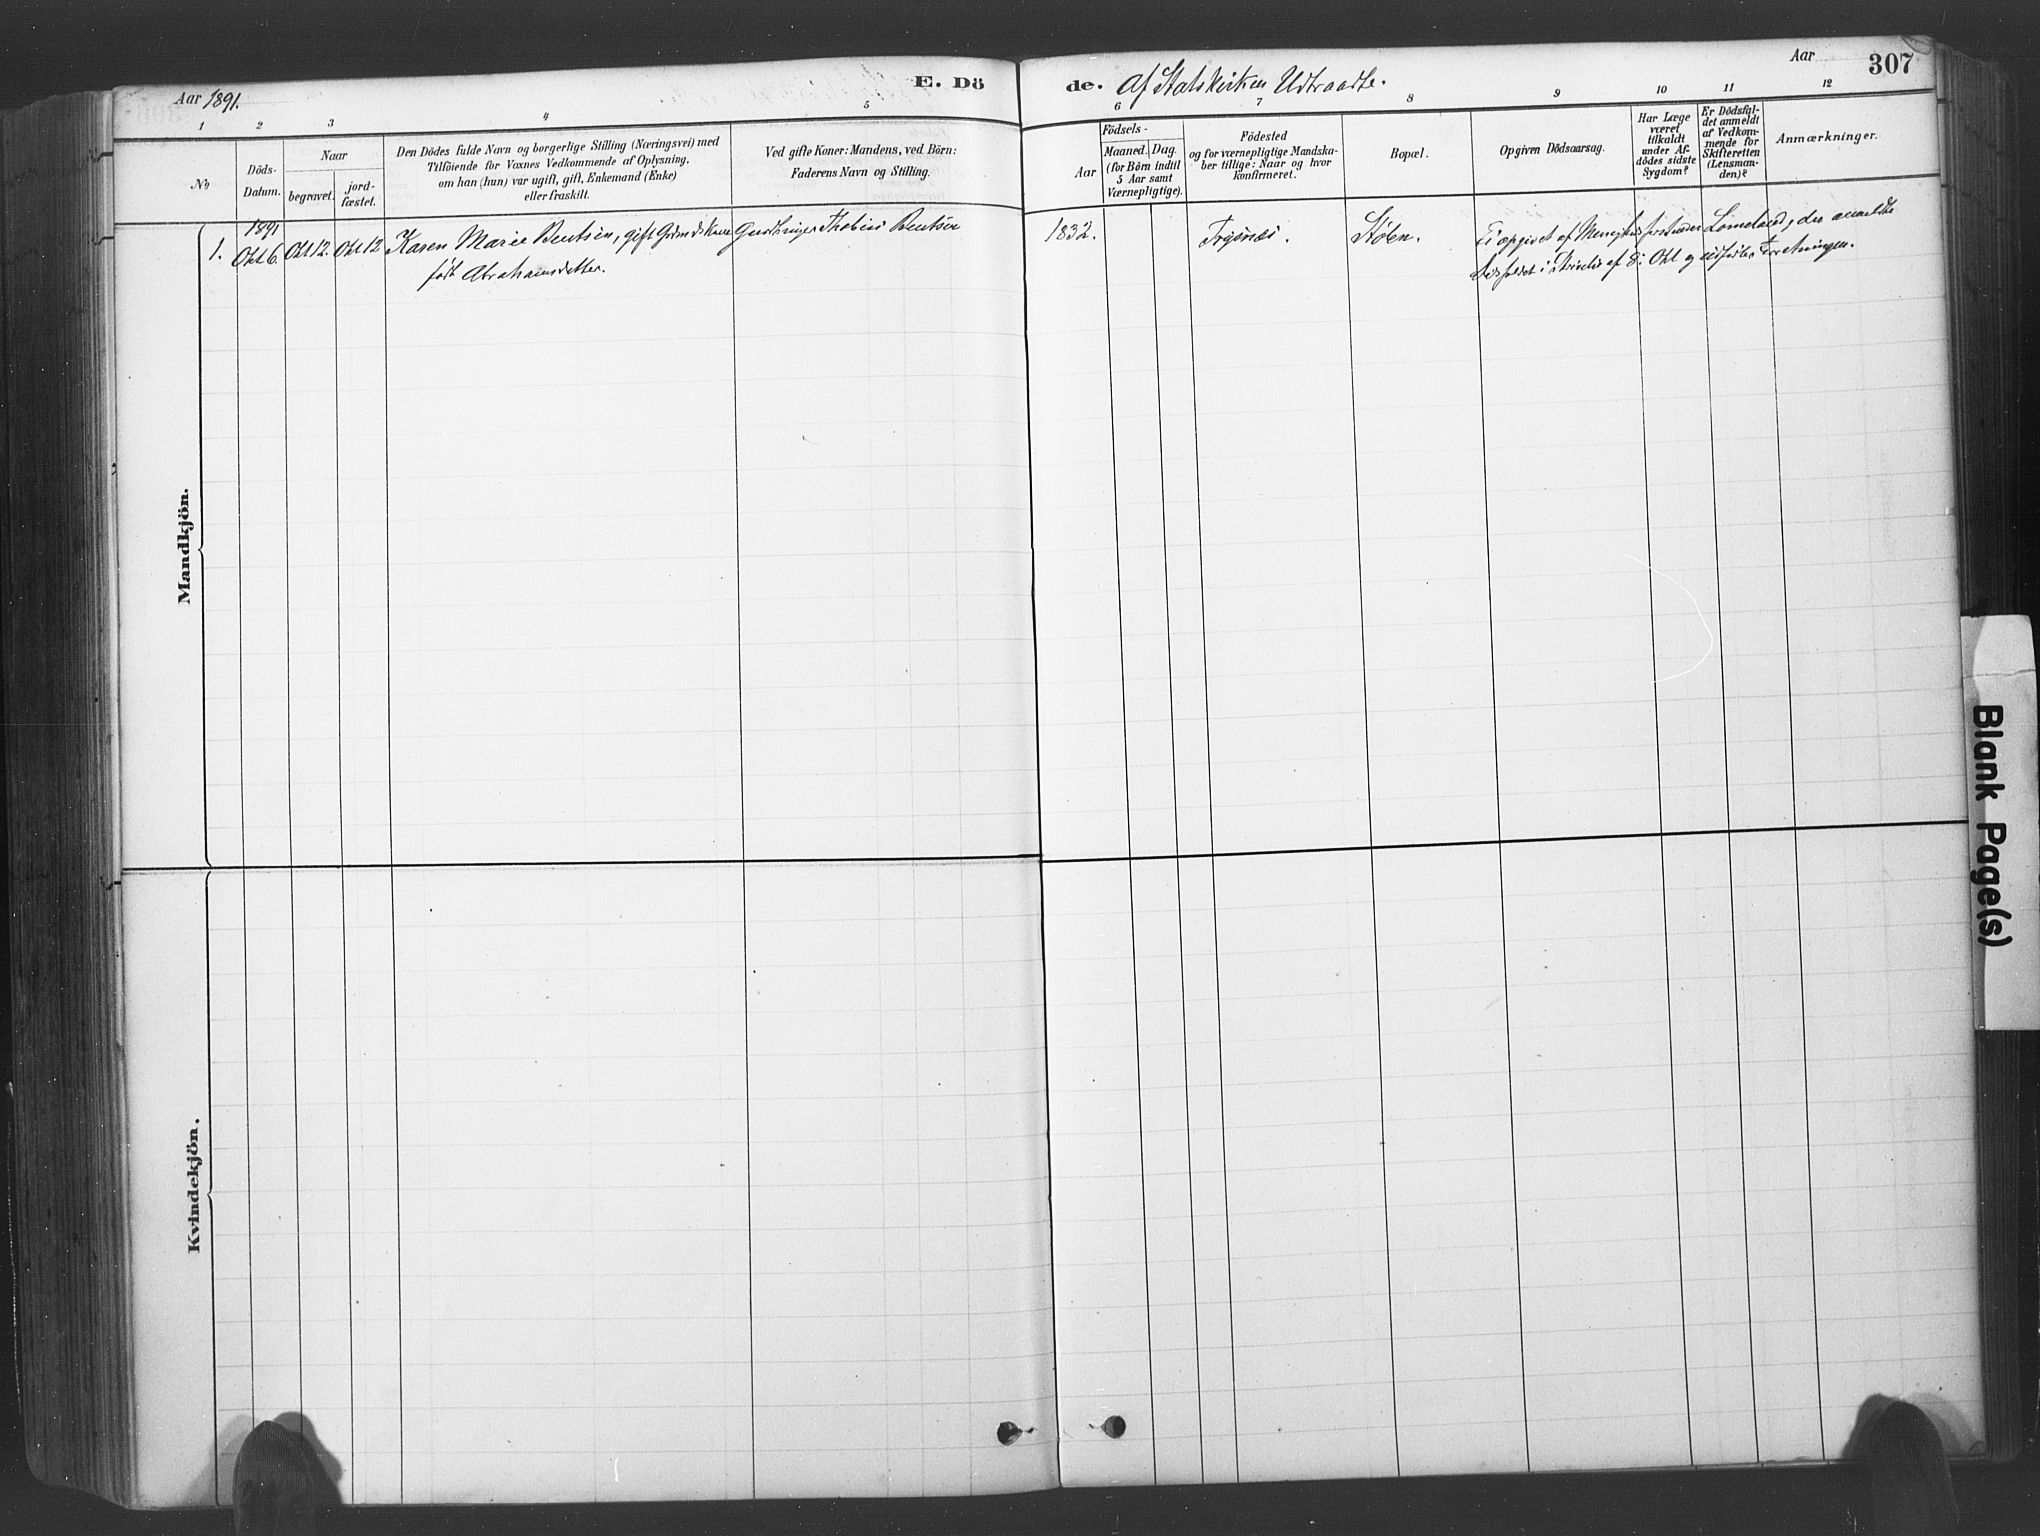 Aar 1891.
E. Dö
de. Af Statskirken Udtraadte.
Aar
307
1
2
3
4
5
6
7
8
9
10
11
12
No
Döds-
Datum.
Naar
begravet.
jord-
fæstet.
Den Dödes fulde Navn og borgerlige Stilling (Næringsvei) med
Tilföiende for Voxnes Vedkommende af Oplysning,
om han (hun) var ugift, gift, Enkemand (Enke)
eller fraskilt.
Ved gifte Koner: Mandens, ved Börn:
Faderens Navn og Stilling.
Födsels-
Aar
Maaned.
Dag.
(for Börn indtil
5 Aar samt
Værnepligtige).
Födested
og for værnepligtige Mandska-
ber tillige: Naar og hvor
konfirmeret.
Bopæl.
Opgiven Dödsaarsag.
Har Læge
været
tilkaldt
under Af-
dödes sidste
Sygdom?
Er Dödsfal-
det anmeldt
af Vedkom-
mende for
Skifteretten
(Lensman-
den)?
Anmærkninger.
1891
1. Okt 6. Okt 12. Okt 12. Karen Marie Bentsen, gift Gaardbruger Thobias Bentsen 1832. Støen. af 8. Okt og
født Abrahamsdatter.
Mandkjön.
Kvindekjön.
Blank Page(s)